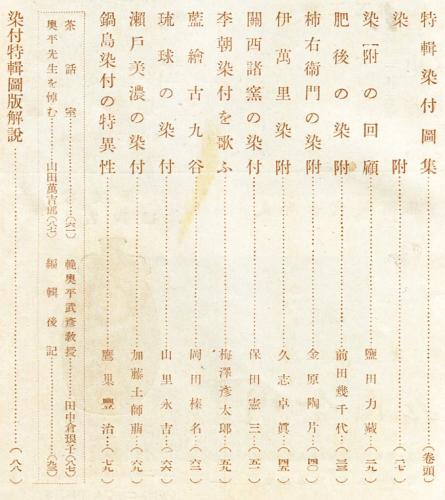 特輯染付圖集……(卷頭)
染附……(一七)
染附の回顧……鹽田力藏(二九)
肥後の染附……前田幾千代(三三)
柿右衞門の染附……金原陶片(四〇)
伊萬里染附……久志卓眞(四五)
關西諸窯の染付……保田憲三(五一)
李朝染付を歌ふ……梅澤彥太郞(五九)
藍繪古九谷……岡田榛名(六三)
琉球の染付……山里永吉(六六)
瀨戶美濃の染付……加藤土師萠(六九)
鍋島染付の特異性……鷹巢豐治(七九)
茶話室……(六二) 輓奧平武彥敎授……田中倉琅子(八七)
奧平先生を悼む……山田萬吉郞(八七) 編輯後記……(九二)
染付特輯圖版解說……(八八)